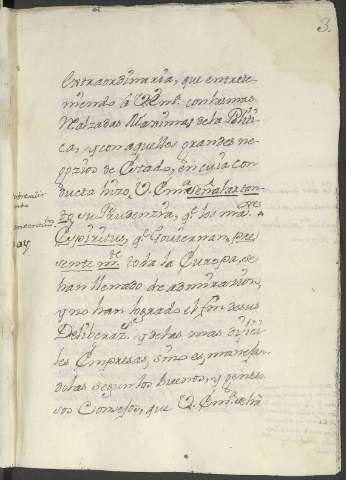 3.
extraordinaria, que entrete-
niendo à V. Em.ª con las mas
realzadas Maximas de la Politi-
ca, y con aquellos grandes ne-
gozios de Estado, en cuia con-
ducta hizo V. Em.ª señalar tan-
to su Prudenzia, q.e los ma.ores
Espiritus, q.e Gouiernan, pre-
sente m.te toda la Europa, se
han llenado de admirazion,
y no han logrado el fin de sus
Deliberaz.s y de las mas dificí-
les Empresas, sino es manejan-
dolas segun los buenos, y gene-
rosos Consejos, que V. Em.ª